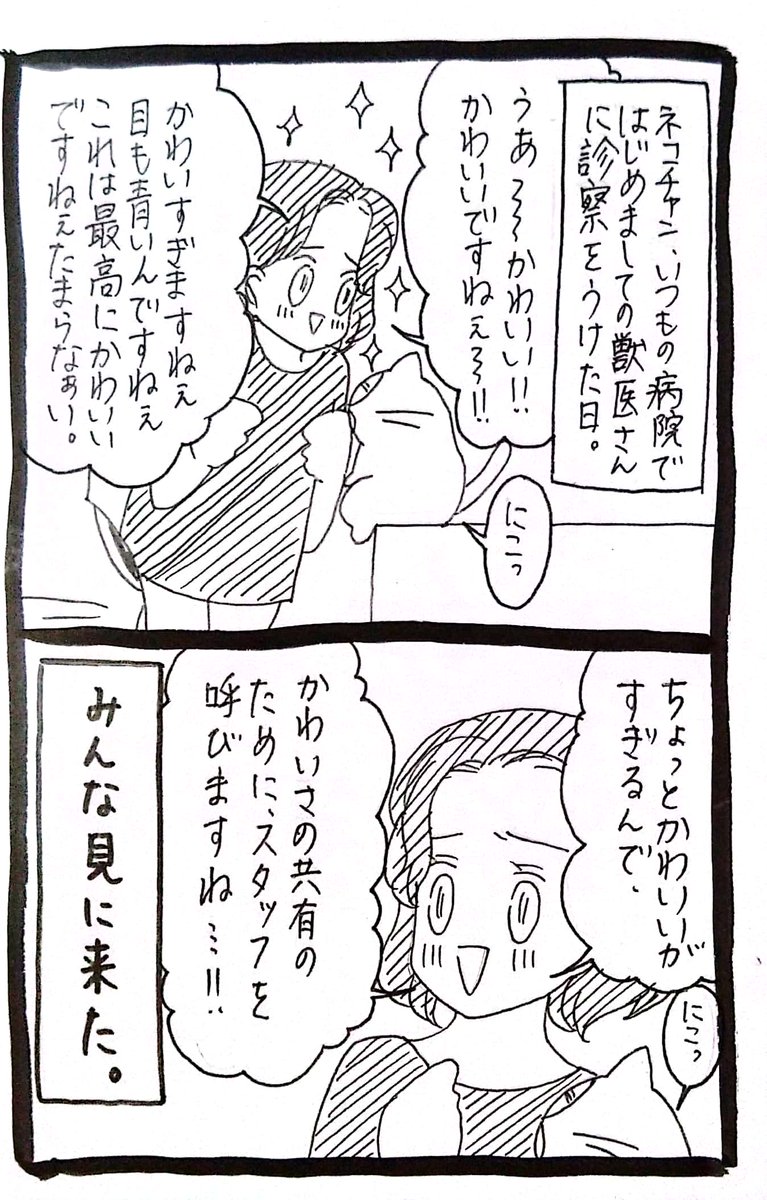 ネコチャン、いつもの病院で
はじめましての獣医さん
に診察をうけた日。
うあ〜〜かわいい!!
かわいいですねぇ〜!!
かわいすぎますねぇ
目も青いんですねぇ
これは最高にかわいい
ですねぇたまらなぁい。
にこっ
ちょっとかわいいが
すぎるんで、
かわいさの共有の
ために、スタッフを
呼びますね…!!
にこっ
みんな見に来た。